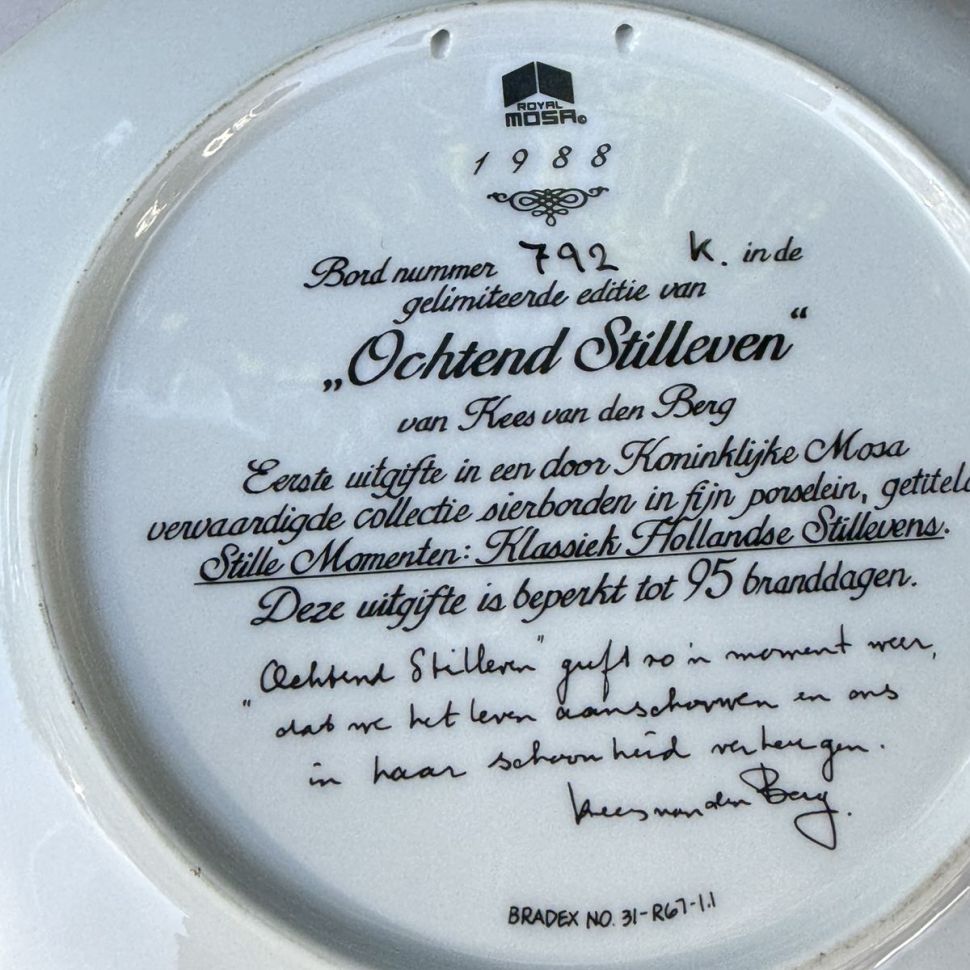 ROYAL
MOSA©
1988
Bord nummer 792 K. in de
gelimiteerde editie van
„Ochtend Stilleven“
van Kees van den Berg
Eerste uitgifte in een door Koninklijke Mosa
vervaardigde collectie sierborden in fijn porselein, getiteld
Stille Momenten: Klassiek Hollandse Stillevens.
Deze uitgifte is beperkt tot 95 branddagen.
"Ochtend Stilleven" geeft zo'n moment weer,
dat we het leven aanschouwen en ons
in haar schoonheid verheugen.
Kees van den Berg.
BRADEX NO. 31-R67-1.1